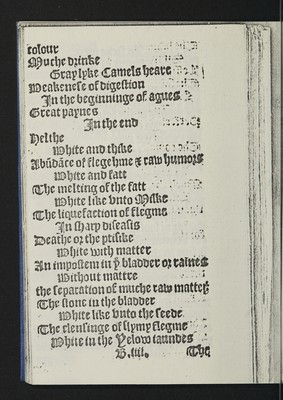 colour
Muche drinke
Gray lyke Camels heare
Weakenese of digestion
In the beginninge of agues
Great paynes
In the end
Helthe
White and thike
Abūdāce of flegehme & raw humors
White and fatt
The melting of the fatt
White like vnto Milke
The liquefaction of flegme
In sharp diseasis
Deathe or the ptisike
White with matter
An impostem in yͤ bladder or raines
Without mattre
the separation of muche raw matter
The stone in the bladder
White like vnto the seede
The clensinge of slymy flegme
White in the Yelow iaundes
B.iii. The